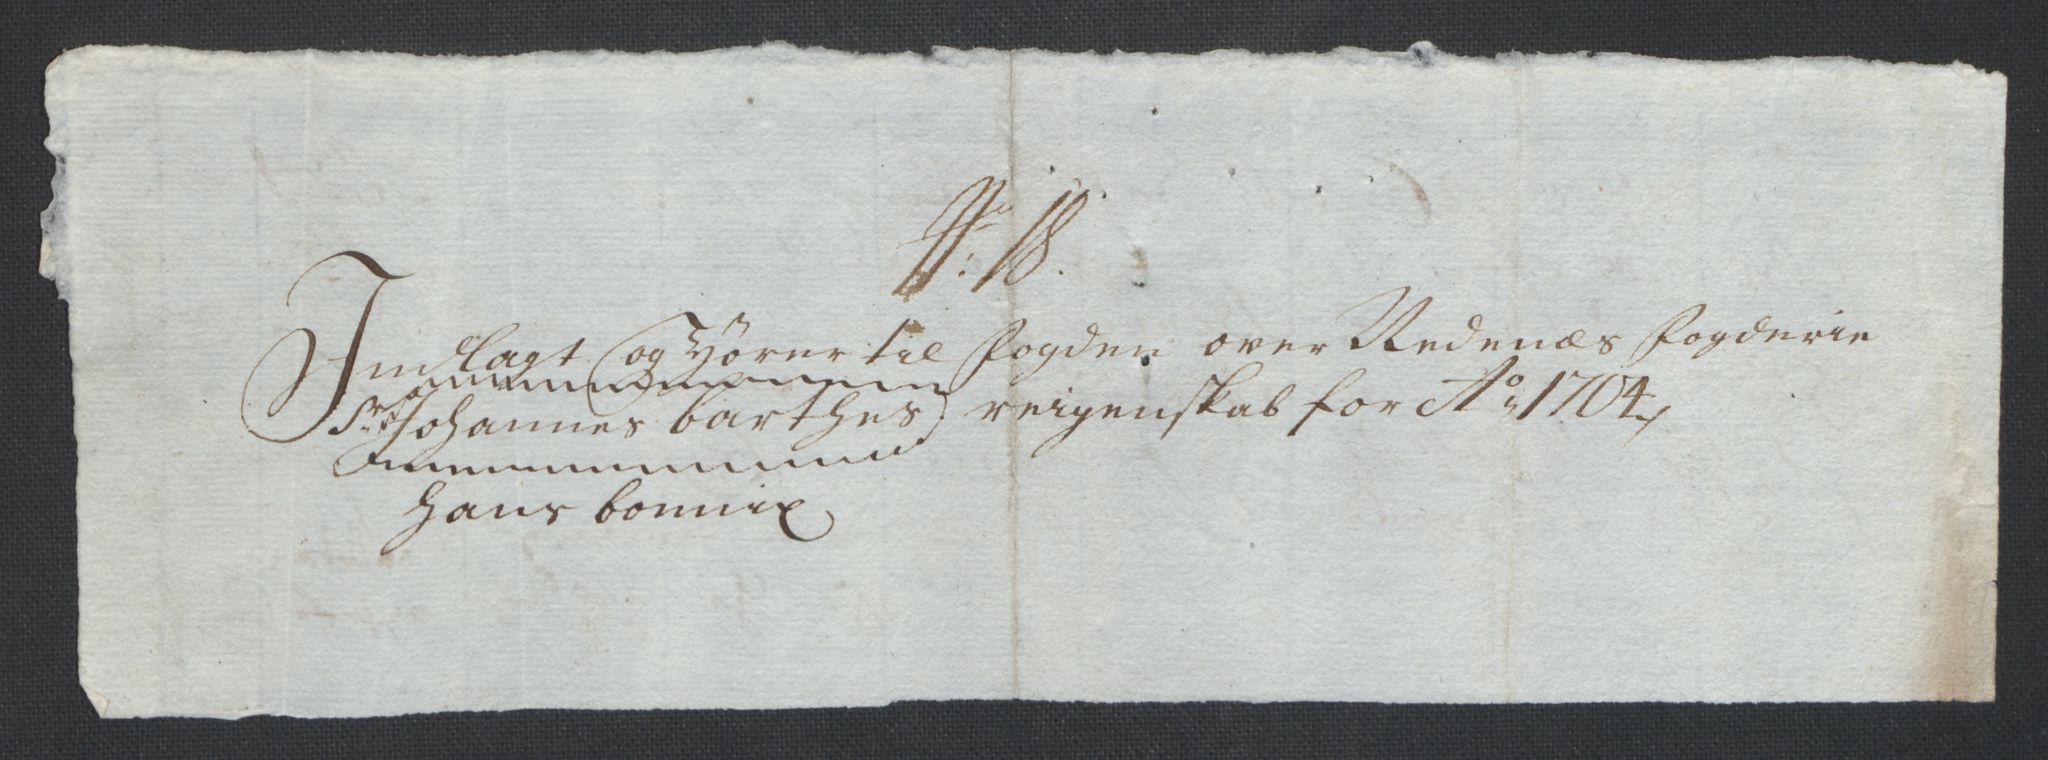 No: 18.
Indlagt og Hører til fogden over Nedenæs fogderie
Sr: Johannes barthes reigenskab for Ao 1704
hans bonnix